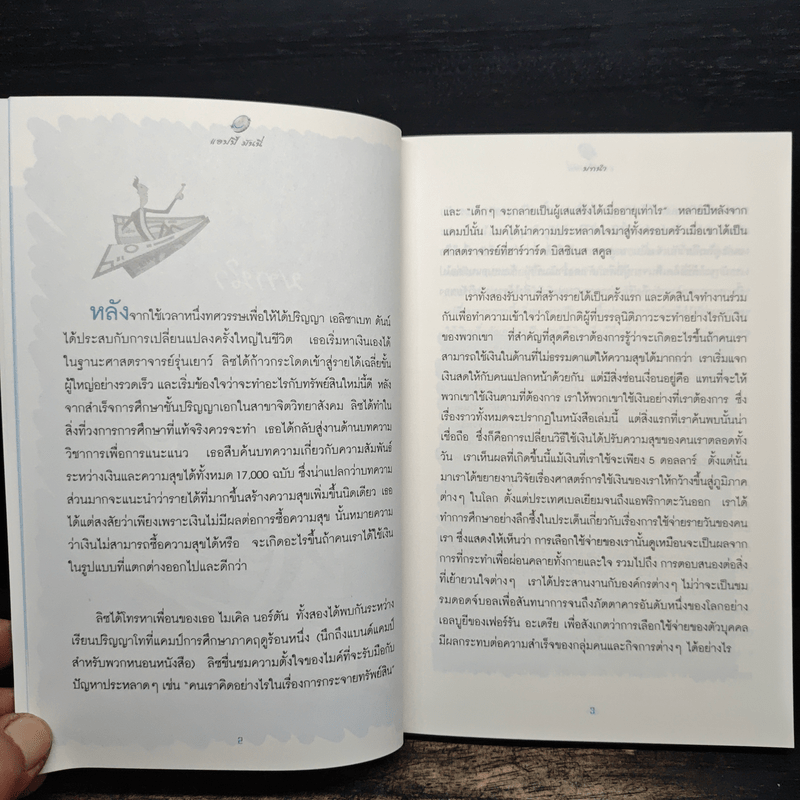 แฮปปี้ มันนี่
หลังจากใช้เวลาหนึ่งทศวรรษเพื่อให้ได้ปริญญา เอลิซาเบท ดันน์
ได้ประสบกับการเปลี่ยนแปลงครั้งใหญ่ในชีวิต เธอเริ่มหาเงินเองได้
ในฐานะศาสตราจารย์รุ่นเยาว์ ลิซได้ก้าวกระโดดเข้าสู่รายได้เฉลี่ยขั้น
ผู้ใหญ่อย่างรวดเร็ว และเริ่มข้องใจว่าจะทำอะไรกับทรัพย์สินใหม่นี้ดี หลัง
จากสำเร็จการศึกษาชั้นปริญญาเอกในสาขาจิตวิทยาสังคม ลิซได้ทำใน
สิ่งที่วงการการศึกษาที่แท้จริงควรจะทำ เธอได้กลับสู่งานด้านบทความ
วิชาการเพื่อการแนะแนว เธอสืบค้นบทความเกี่ยวกับความสัมพันธ์
ระหว่างเงินและความสุขได้ทั้งหมด 17,000 ฉบับ ซึ่งน่าแปลกว่าบทความ
ส่วนมากจะแนะนำว่ารายได้ที่มากขึ้นสร้างความสุขเพิ่มขึ้นนิดเดียว เธอ
ได้แต่สงสัยว่าเพียงเพราะเงินไม่มีผลต่อการซื้อความสุข นั้นหมายความ
ว่าเงินไม่สามารถซื้อความสุขได้หรือ จะเกิดอะไรขึ้นถ้าคนเราได้ใช้เงิน
ในรูปแบบที่แตกต่างออกไปและดีกว่า
ลิซได้โทรหาเพื่อนของเธอ ไมเคิล นอร์ตัน ทั้งสองได้พบกันระหว่าง
เรียนปริญญาโทที่แคมป์การศึกษาภาคฤดูร้อนหนึ่ง (นึกถึงแบนด์แคมป์
สำหรับพวกหนอนหนังสือ) ลิซชื่นชมความตั้งใจของไมค์ที่จะรับมือกับ
ปัญหาประหลาดๆ เช่น "คนเราคิดอย่างไรในเรื่องการกระจายทรัพย์สิน"
2
และ "เด็กๆ จะกลายเป็นผู้เสแสร้งได้เมื่ออายุเท่าไร" หลายปีหลังจาก
แคมป์นั้น ไมค์ได้นำความประหลาดใจมาสู่ทั้งครอบครัวเมื่อเขาได้เป็น
ศาสตราจารย์ที่ฮาร์วาร์ด บิสซิเนส สคูล
เราทั้งสองรับงานที่สร้างรายได้เป็นครั้งแรก และตัดสินใจทำงานร่วม
กันเพื่อทำความเข้าใจว่าโดยปกติผู้ที่บรรลุนิติภาวะจะทำอย่างไรกับเงิน
ของพวกเขา ที่สำคัญที่สุดคือเราต้องการรู้ว่าจะเกิดอะไรขึ้นถ้าคนเรา
สามารถใช้เงินในด้านที่ไม่ธรรมดาแต่ให้ความสุขได้มากกว่า เราเริ่มแจก
เงินสดให้กับคนแปลกหน้าด้วยกัน แต่มีสิ่งซ่อนเงื่อนอยู่คือ แทนที่จะให้
พวกเขาใช้เงินตามที่ต้องการ เราให้พวกเขาใช้เงินอย่างที่เราต้องการ ซึ่ง
เรื่องราวทั้งหมดจะปรากฏในหนังสือเล่มนี้ แต่สิ่งแรกที่เราค้นพบนั้นน่า
เชื่อถือ ซึ่งก็คือการเปลี่ยนวิธีใช้เงินได้ปรับความสุขของคนเราตลอดทั้ง
วัน เราเห็นผลที่เกิดขึ้นนี้แม้เงินที่เราใช้จะเพียง 5 ดอลลาร์ ตั้งแต่นั้น
มาเราได้ขยายงานวิจัยเรื่องศาสตร์การใช้เงินของเราให้กว้างขึ้นสู่ภูมิภาค
ต่างๆ ในโลก ตั้งแต่ประเทศเบลเยียมจนถึงแอฟริกาตะวันออก เราได้
ทำการศึกษาอย่างลึกซึ้งในประเด็นเกี่ยวกับเรื่องการใช้จ่ายรายวันของคน
เรา ซึ่งแสดงให้เห็นว่า การเลือกใช้จ่ายของเรานั้นดูเหมือนจะเป็นผลจาก
การที่กระทำเพื่อผ่อนคลายทั้งกายและใจ รวมไปถึง การตอบสนองต่อสิ่ง
ที่เย้ายวนใจต่างๆ เราได้ประสานงานกับองค์กรต่างๆ ไม่ว่าจะเป็นชม
รมดอดจ์บอลเพื่อสันทนาการจนถึงภัตตาคารอันดับหนึ่งของโลกอย่าง
เอลบูยีของเฟอร์รัน อะเดรีย เพื่อสังเกตว่าการเลือกใช้จ่ายของตัวบุคคล
มีผลกระทบต่อความสำเร็จของกลุ่มคนและกิจการต่างๆ ได้อย่างไร
3